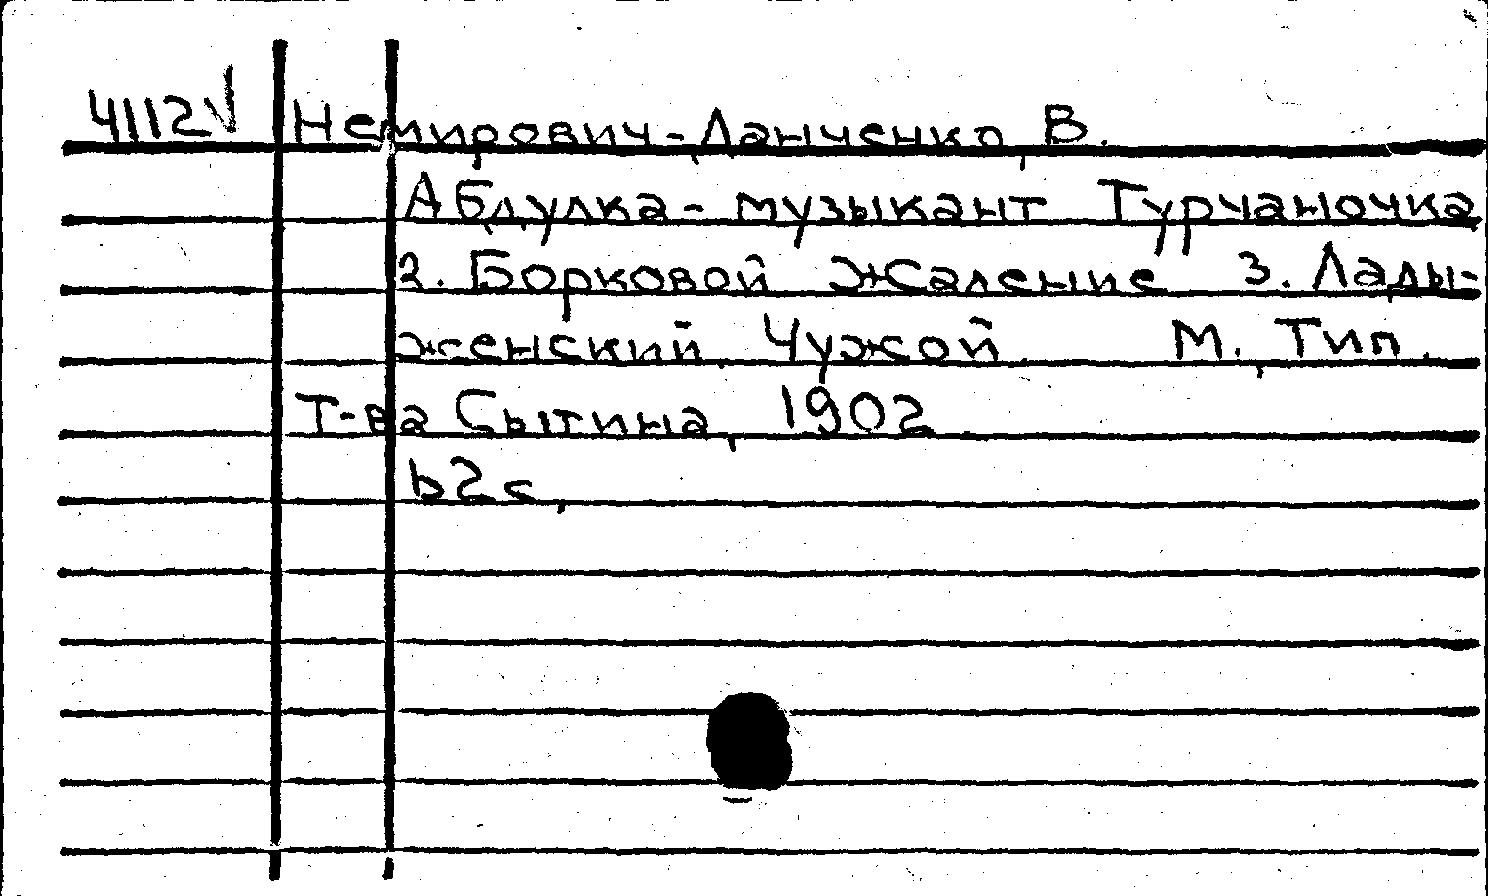 4112√ Немирович-Данченко, В.
Абдулка - музыкант Турчаночка
2. Борковой Жжаление 3. Лады-
женский Чужой. М., Тип.
Т-ва Сытина, 1902
62 с.